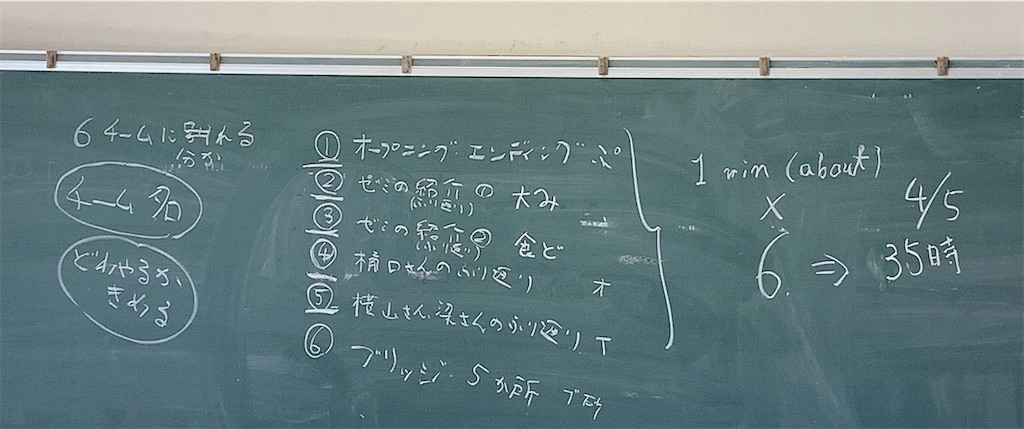 6 チームに割れる
分か
チーム名
どれやるか
きめる
① オープニング・エンディング ポ
② ゼミの紹介の 大み
(ふり返り)
③ ゼミの紹介② 食ど
(ふり返り)
④ 樋口さんのふり返り オ
⑤ 横山さん、梁さんのふり返り T
⑥ ブリッジ・5か所
1 min (about)
×
6 ⇒ 35時
4/5